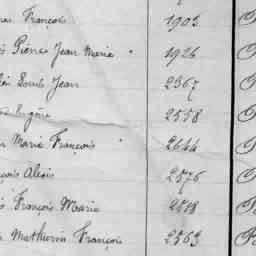 François 1905
Pierre Jean Marie " 1926
Louis Jean 2367
Eugène 2558
Marie François " 2644
Alexis 2576
François Marie 2518
Mathurin François 2563